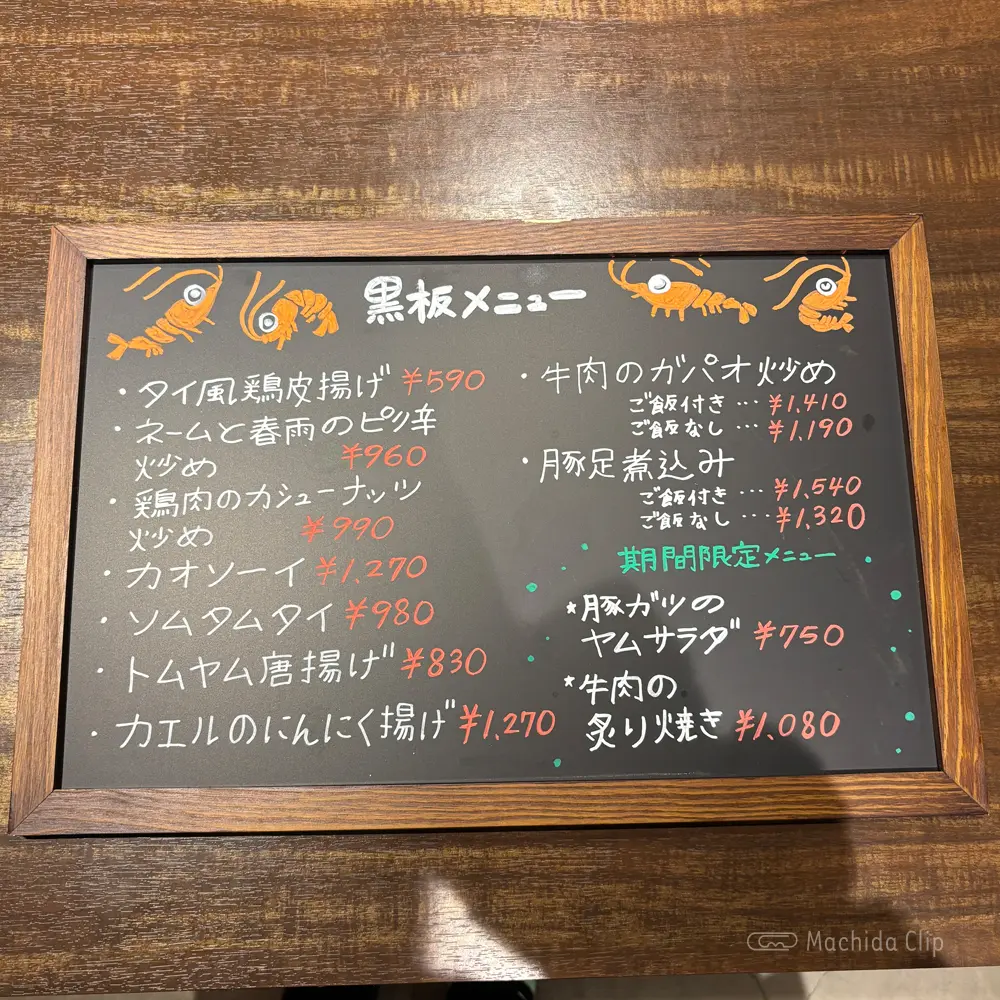 黒板メニュー
・タイ風鶏皮揚げ ¥590
・ネームと春雨のピリ辛
炒め ¥960
・鶏肉のカシューナッツ
炒め ¥990
・カオソーイ ¥1,270
・ソムタムタイ ¥980
・トムヤム唐揚げ ¥830
・カエルのにんにく揚げ ¥1,270
・牛肉のガパオ炒め
ご飯付き … ¥1,410
ご飯なし … ¥1,190
・豚足煮込み
ご飯付き … ¥1,540
ご飯なし … ¥1,320
期間限定メニュー
*豚ガツの
ヤムサラダ ¥750
*牛肉の
炙り焼き ¥1,080
Machida Clip